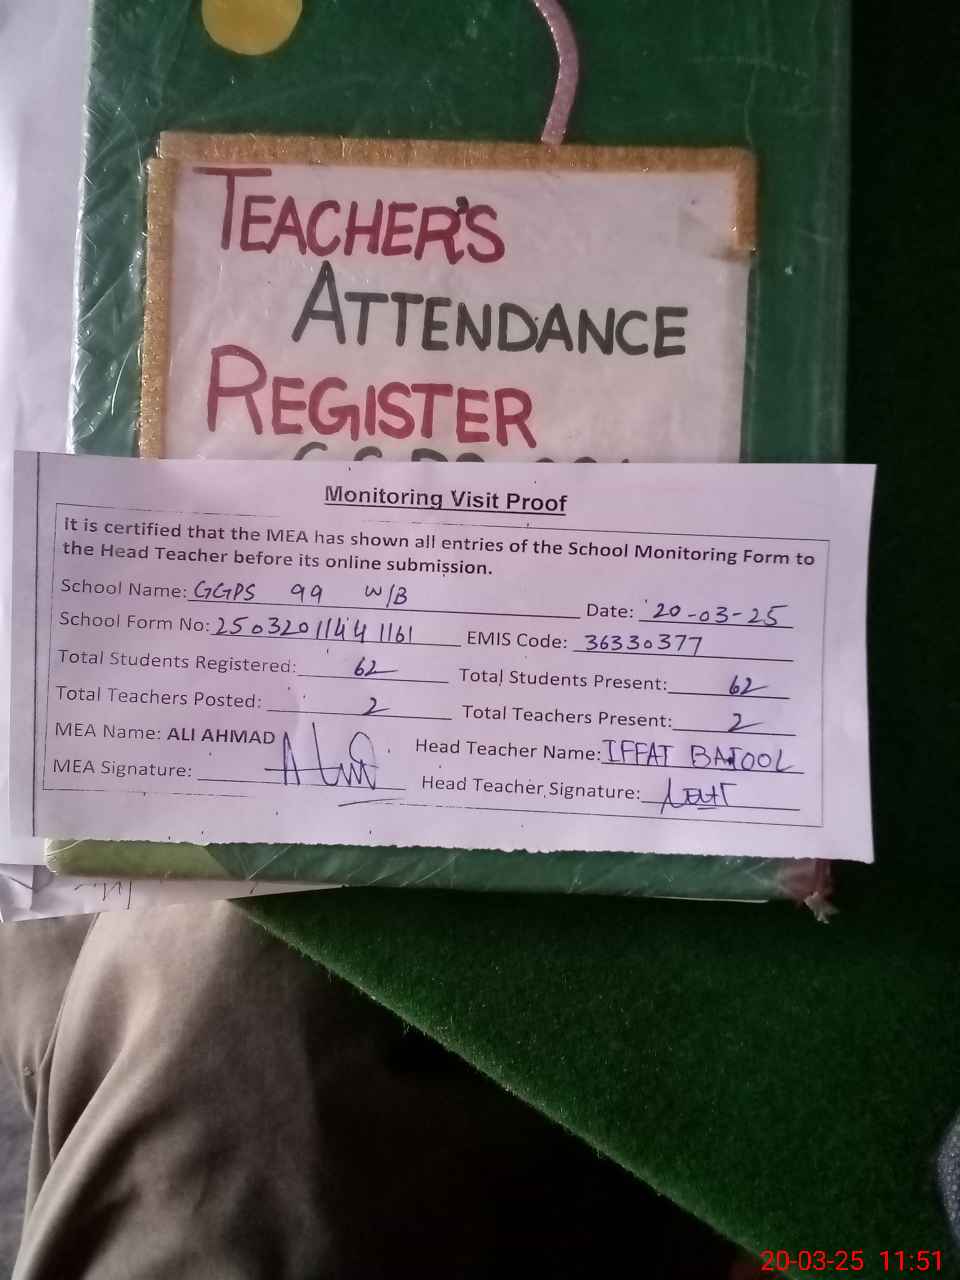 TEACHER'S
ATTENDANCE
REGISTER
Monitoring Visit Proof
It is certified that the MEA has shown all entries of the School Monitoring Form to
the Head Teacher before its online submission.
School Name: GGPS 99 W/B Date: 20-03-25
School Form No: 25032011441161 EMIS Code: 36330377
Total Students Registered: 62 Total Students Present: 62
Total Teachers Posted: 2 Total Teachers Present: 2
MEA Name: ALI AHMAD Head Teacher Name: IFFAT BATOOL
MEA Signature: Head Teacher Signature:
20-03-25 11:51